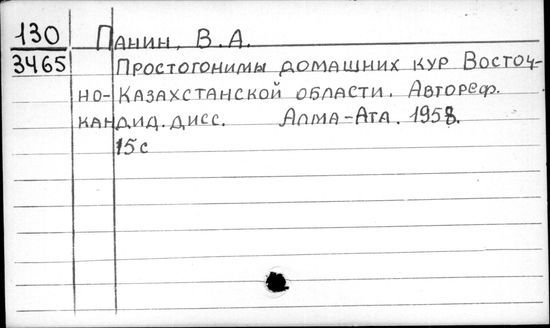 130 Панин, В.А.
3465 Простогонимы домашних кур Восточ-
но-Казахстанской области. Автореф.
кандид. дисс. Алма-Ата. 1958.
15с